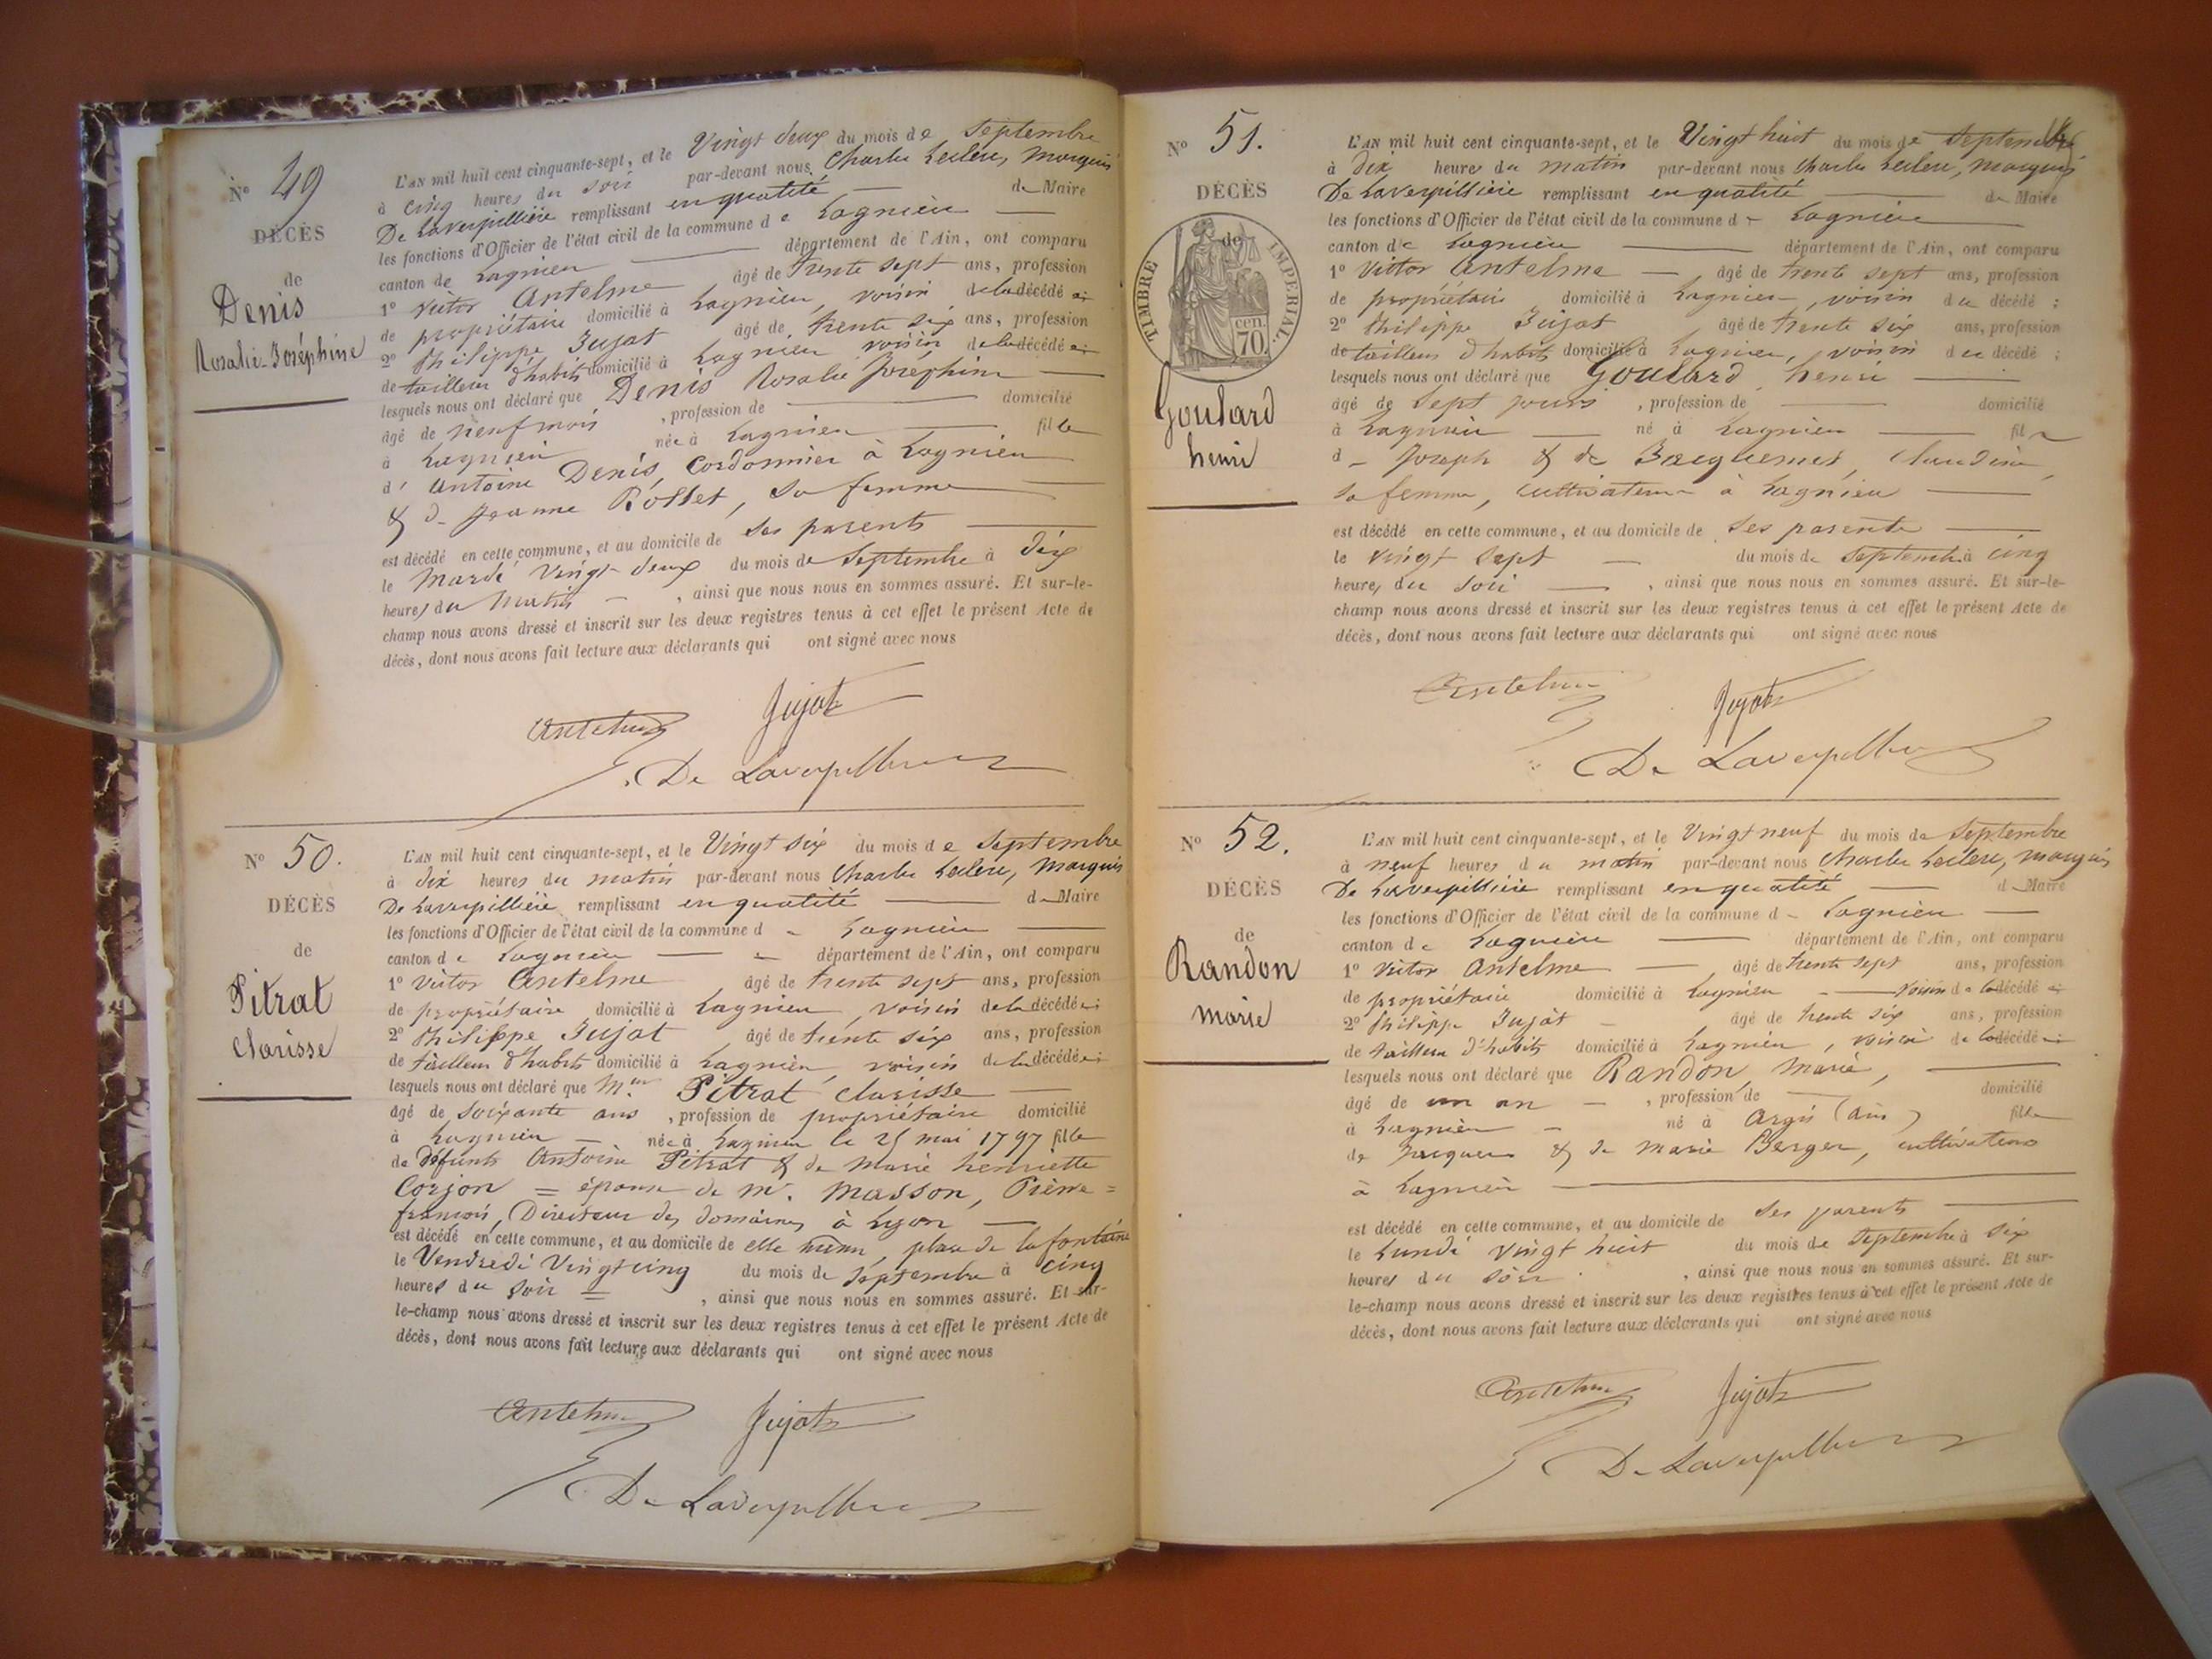 N° 49
DÉCÈS
de
Denis
Rosalie-Joséphine
L'AN mil huit cent cinquante-sept, et le Vingt deux du mois de Septembre
à cinq heures du soir par-devant nous Charles Leclerc, Marquis
De Laverpillière remplissant en qualité de Maire
les fonctions d'Officier de l'état civil de la commune de Lagnieu
canton de Lagnieu département de l'Ain, ont comparu
1° Victor Antelme âgé de trente sept ans, profession
de propriétaire domicilié à Lagnieu, voisin de la décédée
2° Philippe Jujat âgé de trente six ans, profession
de tailleur d'habits domicilié à Lagnieu voisin de la décédée
lesquels nous ont déclaré que Denis Rosalie Joséphine
âgé de neuf mois, profession de domicilié
à Lagnieu née à Lagnieu fille
d'Antoine Denis, Cordonnier à Lagnieu
& d. Jeanne Rollet, sa femme
est décédé en cette commune, et au domicile de ses parents
le Mardi Vingt-deux du mois de Septembre à dix
heures du matin, ainsi que nous nous en sommes assuré. Et sur-le-
champ nous avons dressé et inscrit sur les deux registres tenus à cet effet le présent Acte de
décès, dont nous avons fait lecture aux déclarants qui ont signé avec nous
Antelme Jujat
De Laverpillière
N° 50.
DÉCÈS
de
Pitrat
Clarisse
L'AN mil huit cent cinquante-sept, et le Vingt six du mois de Septembre
à dix heures du matin par-devant nous Charles Leclerc, Marquis
De Laverpillière remplissant en qualité de Maire
les fonctions d'Officier de l'état civil de la commune d Lagnieu
canton de Lagnieu département de l'Ain, ont comparu
1° Victor Antelme âgé de trente sept ans, profession
de propriétaire domicilié à Lagnieu, voisin de la décédée
2° Philippe Jujat âgé de trente six ans, profession
de tailleur d'habits domicilié à Lagnieu, voisin de la décédée
lesquels nous ont déclaré que Mme Pitrat Clarisse
âgé de soixante ans, profession de propriétaire domicilié
à Lagnieu née à Lagnieu le 25 mai 1797 fille
de défunts Antoine Pitrat & de Marie henriette
Corjon = épouse de Mr. Masson, Pierre =
françois, Directeur des domaines à Lyon
est décédé en cette commune, et au domicile de elle même, place de la fontaine
le Vendredi Vingt cinq du mois de Septembre à cinq
heures du soir, ainsi que nous nous en sommes assuré. Et sur-
le-champ nous avons dressé et inscrit sur les deux registres tenus à cet effet le présent Acte de
décès, dont nous avons fait lecture aux déclarants qui ont signé avec nous
Antelme Jujat
De Laverpillière
N° 51.
DÉCÈS
de
TIMBRE IMPÉRIAL.
cen.
70
Goulard
henri
L'AN mil huit cent cinquante-sept, et le Vingt huit du mois de Septembre
à dix heures du matin par-devant nous Charles Leclerc, Marquis
De Laverpillière remplissant en qualité de Maire
les fonctions d'Officier de l'état civil de la commune d Lagnieu
canton de Lagnieu département de l'Ain, ont comparu
1° Victor Antelme âgé de trente sept ans, profession
de propriétaire domicilié à Lagnieu, voisin du décédé;
2° Philippe Jujat âgé de trente six ans, profession
de tailleur d'habits domicilié à Lagnieu, voisin du décédé;
lesquels nous ont déclaré que Goulard henri
âgé de sept jours, profession de domicilié
à Lagnieu né à Lagnieu fils
d. Joseph & de Claudine,
sa femme, cultivateurs à Lagnieu
est décédé en cette commune, et au domicile de ses parents
le vingt sept du mois de Septembre à cinq
heures du soir, ainsi que nous nous en sommes assuré. Et sur-le-
champ nous avons dressé et inscrit sur les deux registres tenus à cet effet le présent Acte de
décès, dont nous avons fait lecture aux déclarants qui ont signé avec nous
Antelme Jujat
De Laverpillière
N° 52.
DÉCÈS
de
Randon
marie
L'AN mil huit cent cinquante-sept, et le Vingt neuf du mois de Septembre
à neuf heures du matin par-devant nous Charles Leclerc, Marquis
De Laverpillière remplissant en qualité d Maire
les fonctions d'Officier de l'état civil de la commune d Lagnieu
canton de Lagnieu département de l'Ain, ont comparu
1° Victor Antelme âgé de trente sept ans, profession
de propriétaire domicilié à Lagnieu voisin de la décédée
2° Philippe Jujat âgé de trente six ans, profession
de tailleur d'habits domicilié à Lagnieu, voisin de la décédée
lesquels nous ont déclaré que Randon, Marie,
âgé de un an, profession de domicilié
à Lagnieu né à Argis (Ain) fille
de Jacques & de Marie Berger, cultivateurs
à Lagnieu
est décédé en cette commune, et au domicile de ses parents
le Lundi vingt huit du mois de Septembre à six
heures du soir, ainsi que nous nous en sommes assuré. Et sur-
le-champ nous avons dressé et inscrit sur les deux registres tenus à cet effet le présent Acte de
décès, dont nous avons fait lecture aux déclarants qui ont signé avec nous
Antelme Jujat
De Laverpillière